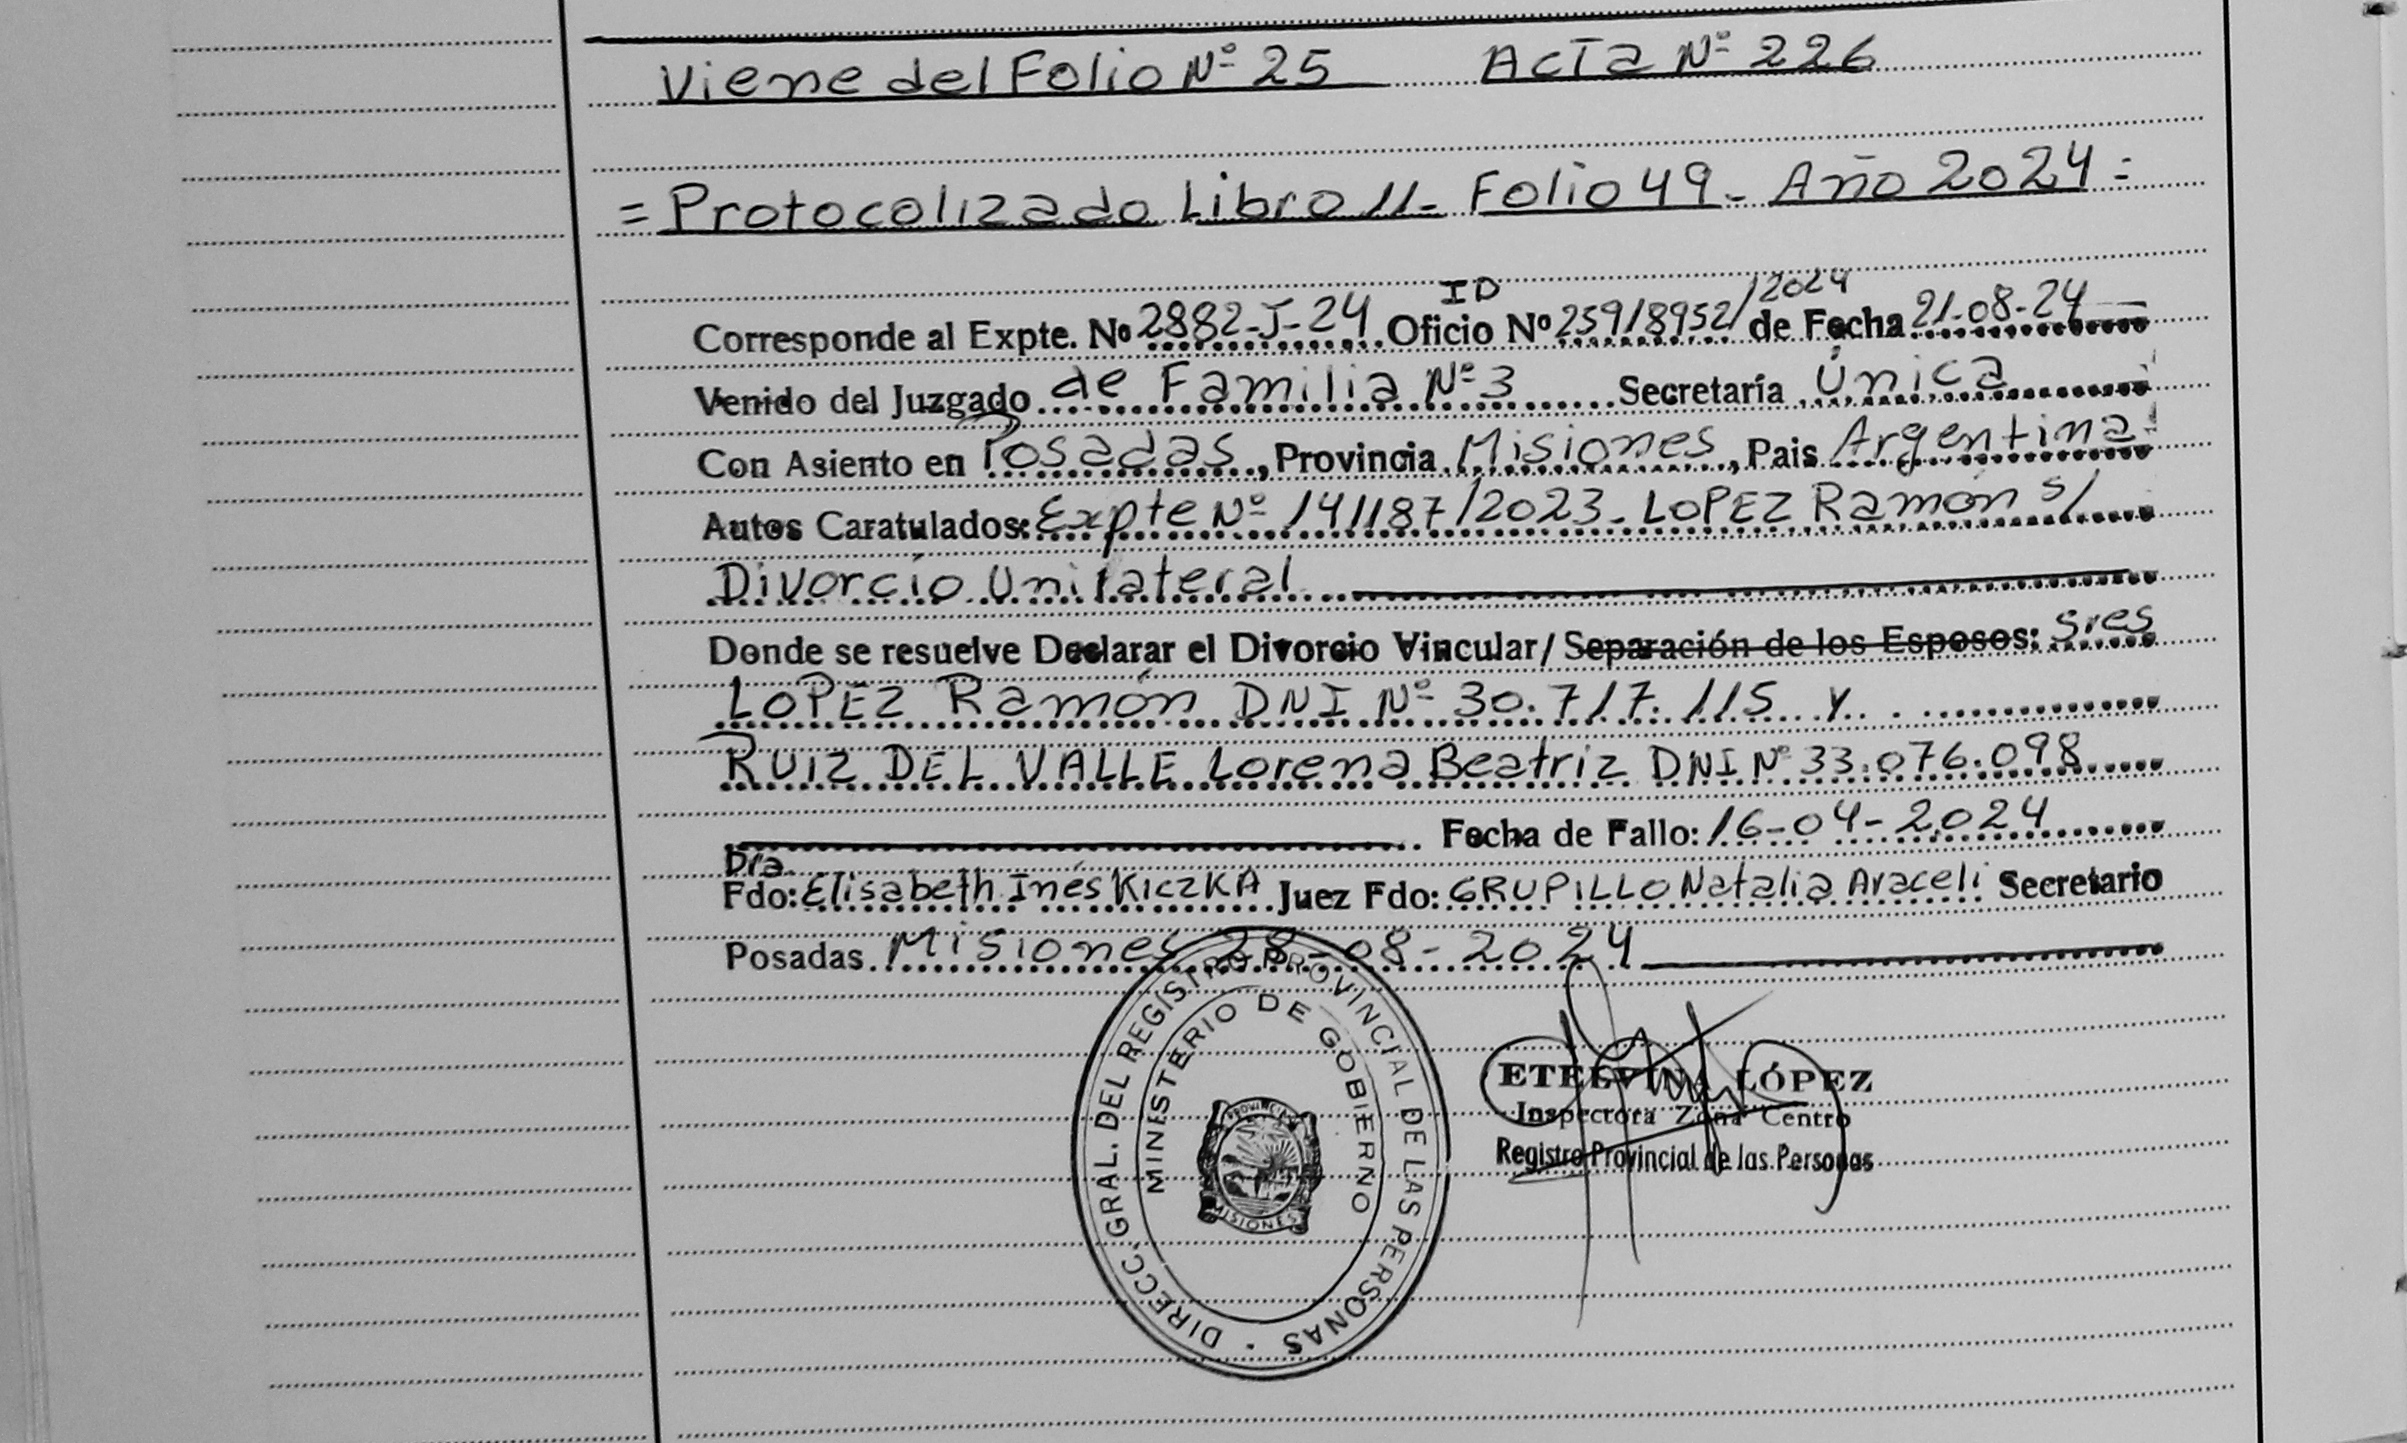 Viene del Folio Nº 25 Acta Nº 226
= Protocolizado Libro 11 - Folio 49 - Año 2024 =
ID
Corresponde al Expte. Nº 2882-J-24 Oficio Nº 25918952/2024 de Fecha 21-08-24
Venido del Juzgado de Familia Nº 3 Secretaría Única
Con Asiento en Posadas, Provincia Misiones, Pais Argentina
Autos Caratulados: Expte Nº 141187/2023 - LOPEZ Ramón s/
Divorcio Unilateral
Donde se resuelve Declarar el Divorcio Vincular/ Separación de los Esposos: Sres
LOPEZ Ramón DNI Nº 30.717.115 y
RUIZ DEL VALLE Lorena Beatriz DNI Nº 33.076.098
Fecha de Fallo: 16-04-2024
Dra.
Fdo: Elisabeth Inés KICZKA Juez Fdo: GRUPILLO Natalia Araceli Secretario
Posadas Misiones 28-08-2024
DIRECC. GRAL. DEL REGISTRO PROVINCIAL DE LAS PERSONAS
MINESTERIO DE GOBIERNO
PROVINCIA
MISIONES
ETELVINA LÓPEZ
Inspectora Zona Centro
Registro Provincial de las Personas